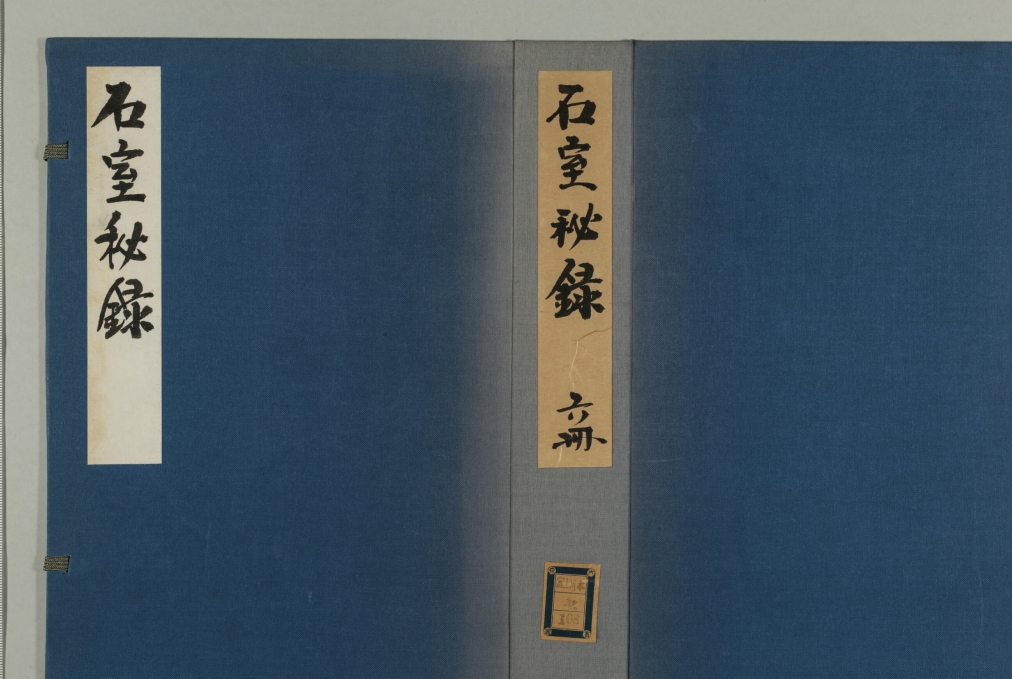 石室秘録
石室秘録 六冊